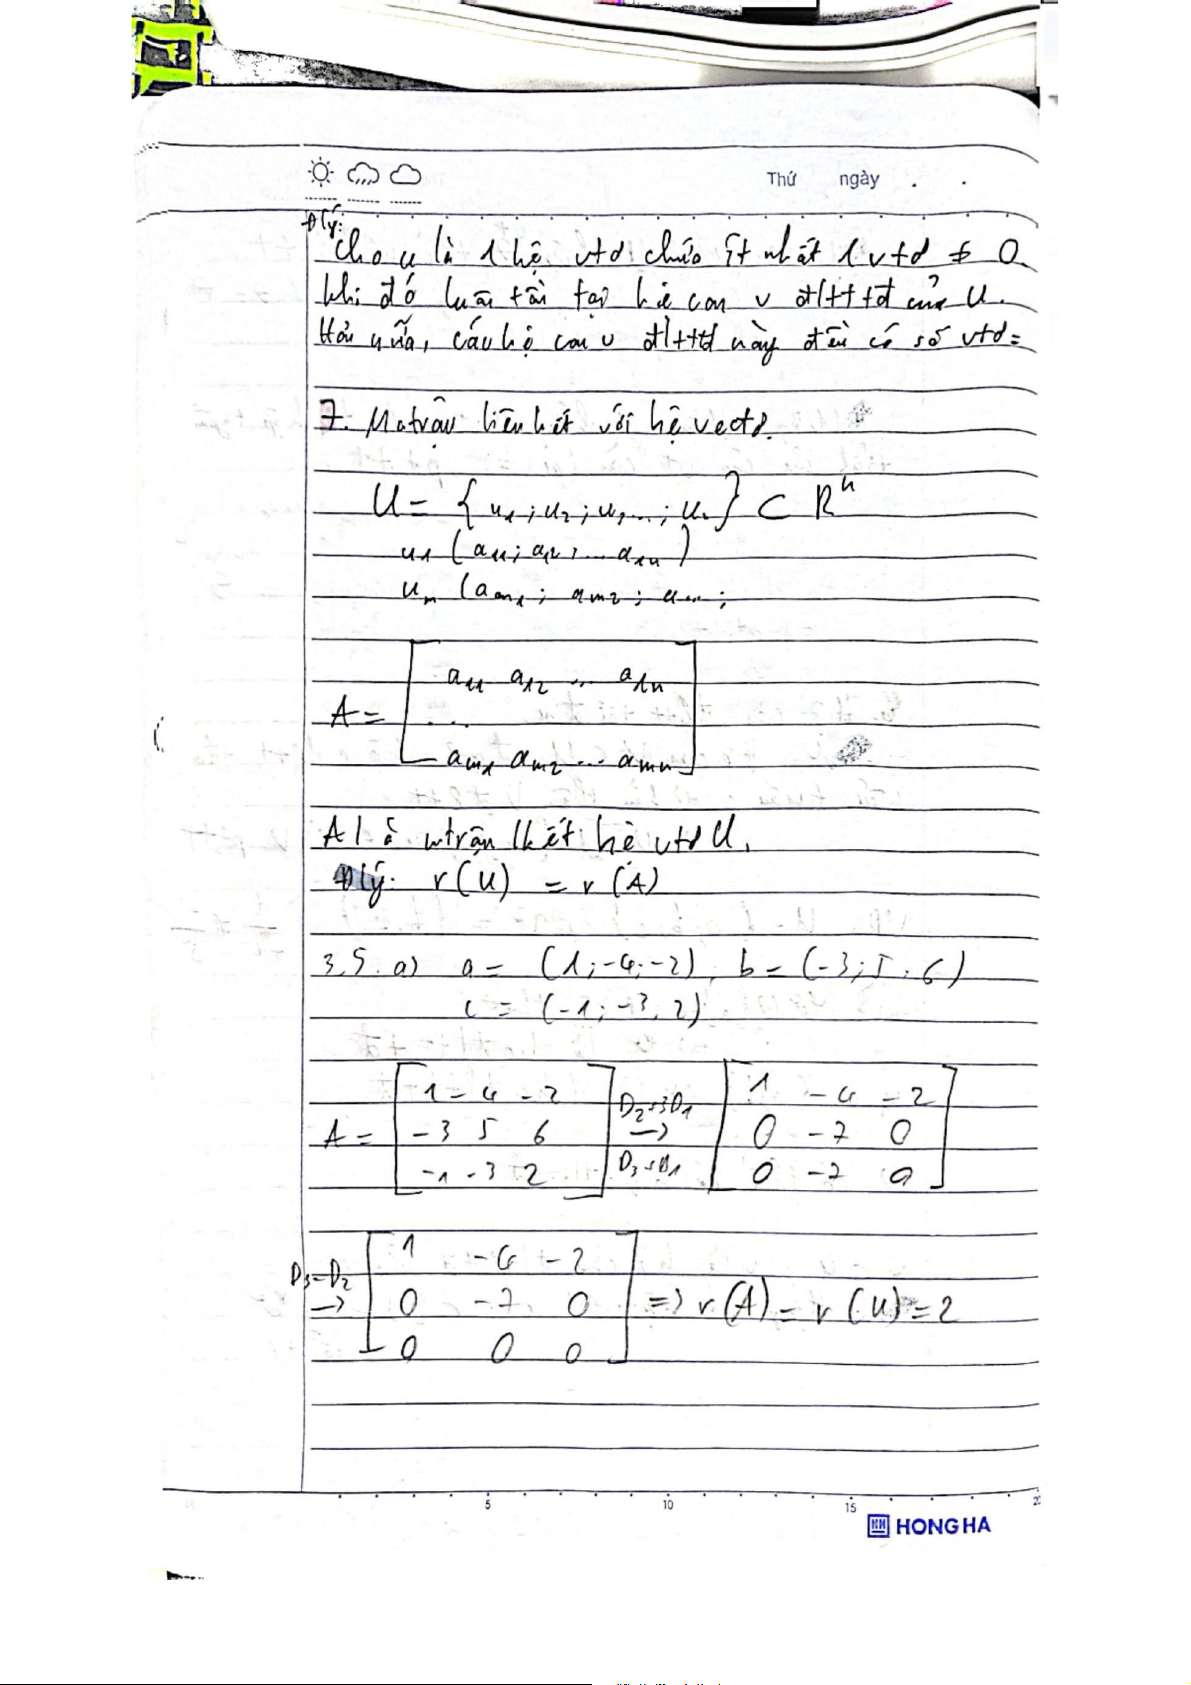 Thứ ngày . .
Đlý:
Cho U là 1 hệ vtơ chứa ít nhất 1 vtơ ≠ 0.
khi đó luôn tồn tại hệ con v đltttđ của U.
Hơn nữa, các hệ con v đltttđ này đều có số vtơ =
7. Ma trận liên kết với hệ vectơ.
U = { u1 ; u2 ; u3 ... ; um } ⊂ R^n
u1 ( a11 ; a12 ; ... a1n )
um ( am1 ; am2 ; amn ;
a11 a12 ... a1n
A = ...
am1 am2 ... amn
A là mtrận lkết hệ vtơ U.
Đlý: r(U) = r(A)
3.5. a) a = (1; -4; -2), b = (-3; 5; 6)
c = (-1; -3, 2)
1 -4 -2 D2+3D1 1 -4 -2
A = -3 5 6 → 0 -7 0
-1 -3 2 D3+D1 0 -7 0
D3-D2 1 -4 -2
→ 0 -7 0 => r(A) = r(U) = 2
0 0 0
5 10 15 20
HONG HA